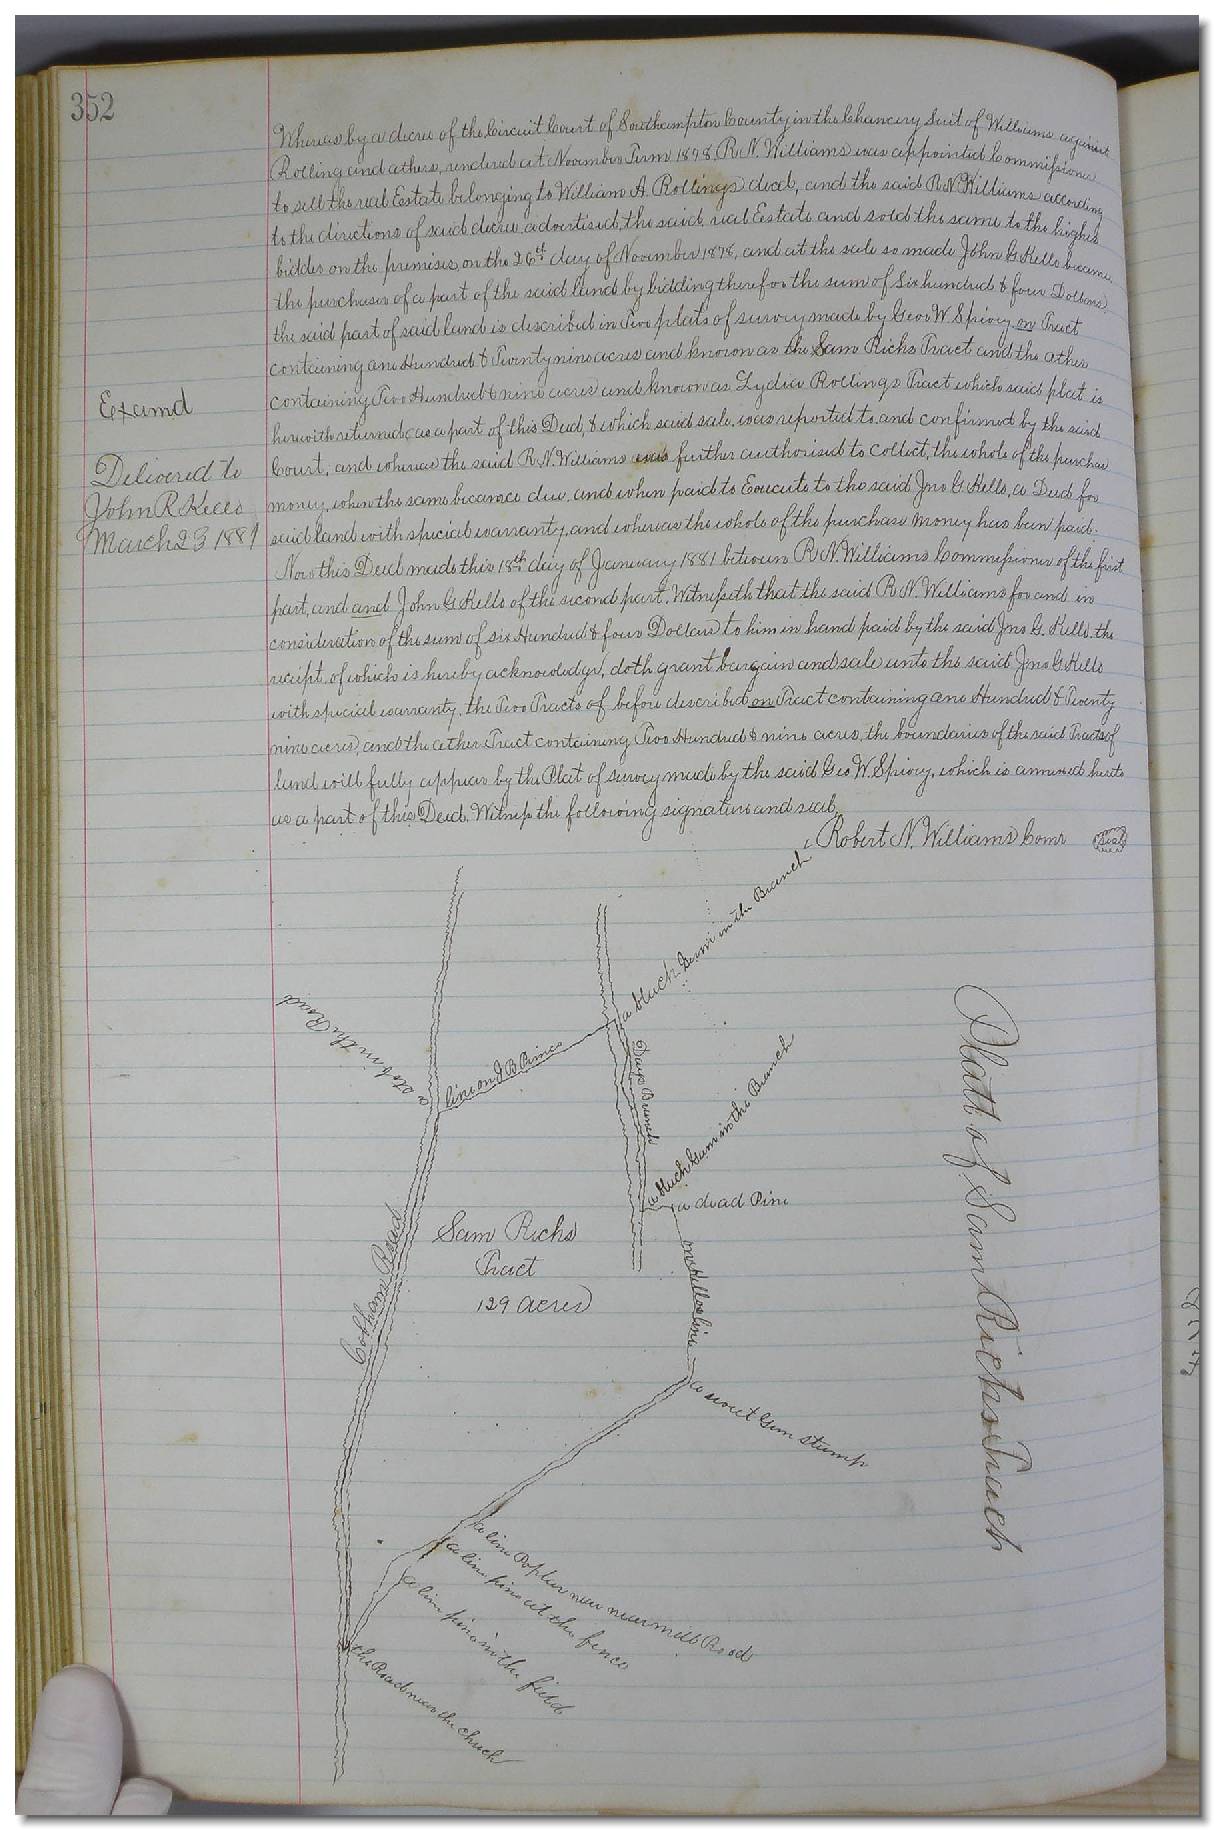 352
Whereas by a decree of the Circuit Court of Southampton County in the Chancery Suit of Williams against
Rolling and others, rendered at November Term 1878, R. N. Williams was appointed Commissioner
to sell the real Estate belonging to William A. Rollings decd, and the said R N Williams according
to the directions of said decree advertised the said real Estate and sold the same to the highest
bidder on the premises, on the 26th day of November 1878, and at the sale so made John G Kello became
the purchaser of a part of the said land by bidding therefor the sum of Six hundred & four Dollars,
the said part of said land is described in Two plats of survey made by Geo W Spivey on Tract
containing one Hundred & Twenty nine acres and known as the Sam Ricks Tract and the other
containing Two Hundred & nine acres and known as Lydia Rollings Tract which said plat is
herewith returned, as a part of this Deed, & which said sale was reported to and confirmed by the said
Court, and whereas the said R. N. Williams was further authorised to collect, the whole of the purchase
money, when the same became due, and when paid to Execute to the said Jno G Kello, a Deed for
said land with special warranty, and whereas the whole of the purchase money has been paid.
Now this Deed made this 18th day of January 1881 between R. N. Williams Commissioner of the first
part, and and John G Kello of the second part. Witnesseth that the said R. N. Williams for and in
consideration of the sum of six Hundred & four Dollars to him in hand paid by the said Jno G. Kello, the
receipt of which is hereby acknowledge, doth grant bargain and sale unto the said Jno G Kello
with special warranty. the Two Tracts of before described on Tract containing one Hundred & Twenty
nine acres, and the other Tract containing Two Hundred & nine acres, the boundaries of the said Tracts of
land will fully appear by the Plat of survey made by the said Geo W. Spivey, which is annexed hereto
as a part of this Deed. Witness the following signature and seal.
Robert N. Williams Comr seal
Examd
Delivered to
John R Kello
March 23 1881
a black Gum in the Branch
a stob in the Road
line on J B Prince
Days Branch
a black Gum in the Branch
a dead Pine
Sam Ricks
Tract
129 acres
on Kellos line
Cobham Road
a sweet Gum stump
a line Poplar near near mill Road
a line pine at the fence
a line pine in the field
the Road near the chuch
Platt of Sam Ricks Track